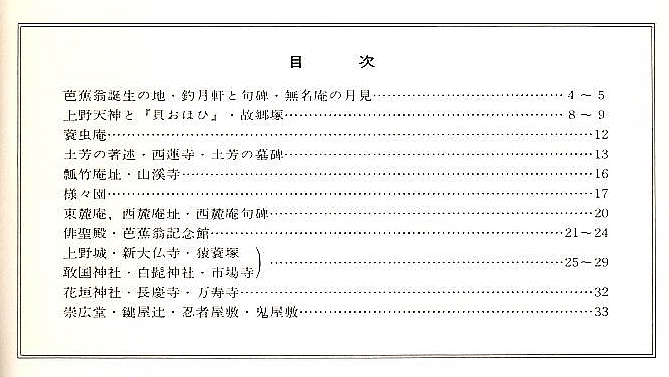 目　次
芭蕉翁誕生の地・釣月軒と句碑・無名庵の月見……………………………4～5
上野天神と『貝おほひ』・故郷塚……………………………………………8～9
蓑虫庵…………………………………………………………………………12
土芳の著述・西蓮寺・土芳の墓碑……………………………………………13
瓢竹庵址・山溪寺………………………………………………………………16
様々園…………………………………………………………………………17
東麓庵，西麓庵址・西麓庵句碑………………………………………………20
俳聖殿・芭蕉翁記念館……………………………………………………21～24
上野城・新大仏寺・猿蓑塚
敢国神社・白髭神社・市場寺）……………………………………………25～29
花垣神社・長慶寺・万寿寺……………………………………………………32
崇広堂・鍵屋辻・忍者屋敷・鬼屋敷…………………………………………33